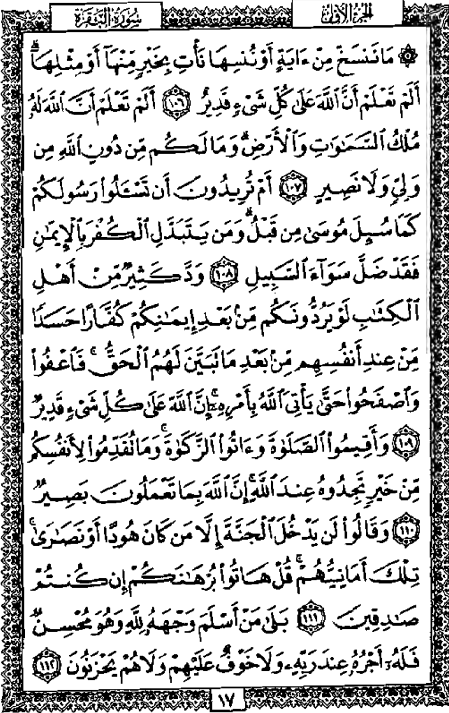 الجزء الأول
سورة البقرة
۞ مَا نَنسَخْ مِنْ ءَايَةٍ أَوْ نُنسِهَا نَأْتِ بِخَيْرٍ مِّنْهَآ أَوْ مِثْلِهَآ ۗ
أَلَمْ تَعْلَمْ أَنَّ ٱللَّهَ عَلَىٰ كُلِّ شَىْءٍ قَدِيرٌ ١٠٦ أَلَمْ تَعْلَمْ أَنَّ ٱللَّهَ لَهُۥ
مُلْكُ ٱلسَّمَـٰوَٰتِ وَٱلْأَرْضِ ۗ وَمَا لَكُم مِّن دُونِ ٱللَّهِ مِن
وَلِىٍّ وَلَا نَصِيرٍ ١٠٧ أَمْ تُرِيدُونَ أَن تَسْـَٔلُوا۟ رَسُولَكُمْ
كَمَا سُئِلَ مُوسَىٰ مِن قَبْلُ ۗ وَمَن يَتَبَدَّلِ ٱلْكُفْرَ بِٱلْإِيمَـٰنِ
فَقَدْ ضَلَّ سَوَآءَ ٱلسَّبِيلِ ١٠٨ وَدَّ كَثِيرٌ مِّنْ أَهْلِ
ٱلْكِتَـٰبِ لَوْ يَرُدُّونَكُم مِّنۢ بَعْدِ إِيمَـٰنِكُمْ كُفَّارًا حَسَدًا
مِّنْ عِندِ أَنفُسِهِم مِّنۢ بَعْدِ مَا تَبَيَّنَ لَهُمُ ٱلْحَقُّ ۖ فَٱعْفُوا۟
وَٱصْفَحُوا۟ حَتَّىٰ يَأْتِىَ ٱللَّهُ بِأَمْرِهِۦٓ ۗ إِنَّ ٱللَّهَ عَلَىٰ كُلِّ شَىْءٍ قَدِيرٌ
١٠٩ وَأَقِيمُوا۟ ٱلصَّلَوٰةَ وَءَاتُوا۟ ٱلزَّكَوٰةَ ۚ وَمَا تُقَدِّمُوا۟ لِأَنفُسِكُم
مِّنْ خَيْرٍ تَجِدُوهُ عِندَ ٱللَّهِ ۗ إِنَّ ٱللَّهَ بِمَا تَعْمَلُونَ بَصِيرٌ
١١٠ وَقَالُوا۟ لَن يَدْخُلَ ٱلْجَنَّةَ إِلَّا مَن كَانَ هُودًا أَوْ نَصَـٰرَىٰ ۗ
تِلْكَ أَمَانِيُّهُمْ ۗ قُلْ هَاتُوا۟ بُرْهَـٰنَكُمْ إِن كُنتُمْ
صَـٰدِقِينَ ١١١ بَلَىٰ مَنْ أَسْلَمَ وَجْهَهُۥ لِلَّهِ وَهُوَ مُحْسِنٌ
فَلَهُۥٓ أَجْرُهُۥ عِندَ رَبِّهِۦ وَلَا خَوْفٌ عَلَيْهِمْ وَلَا هُمْ يَحْزَنُونَ ١١٢
١٧